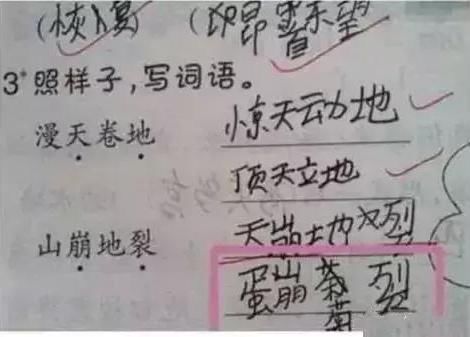 (恢)复
昂首东望
3*照样子,写词语。
漫天卷地 惊天动地
顶天立地
山崩地裂 天崩地裂
蛋崩菊裂